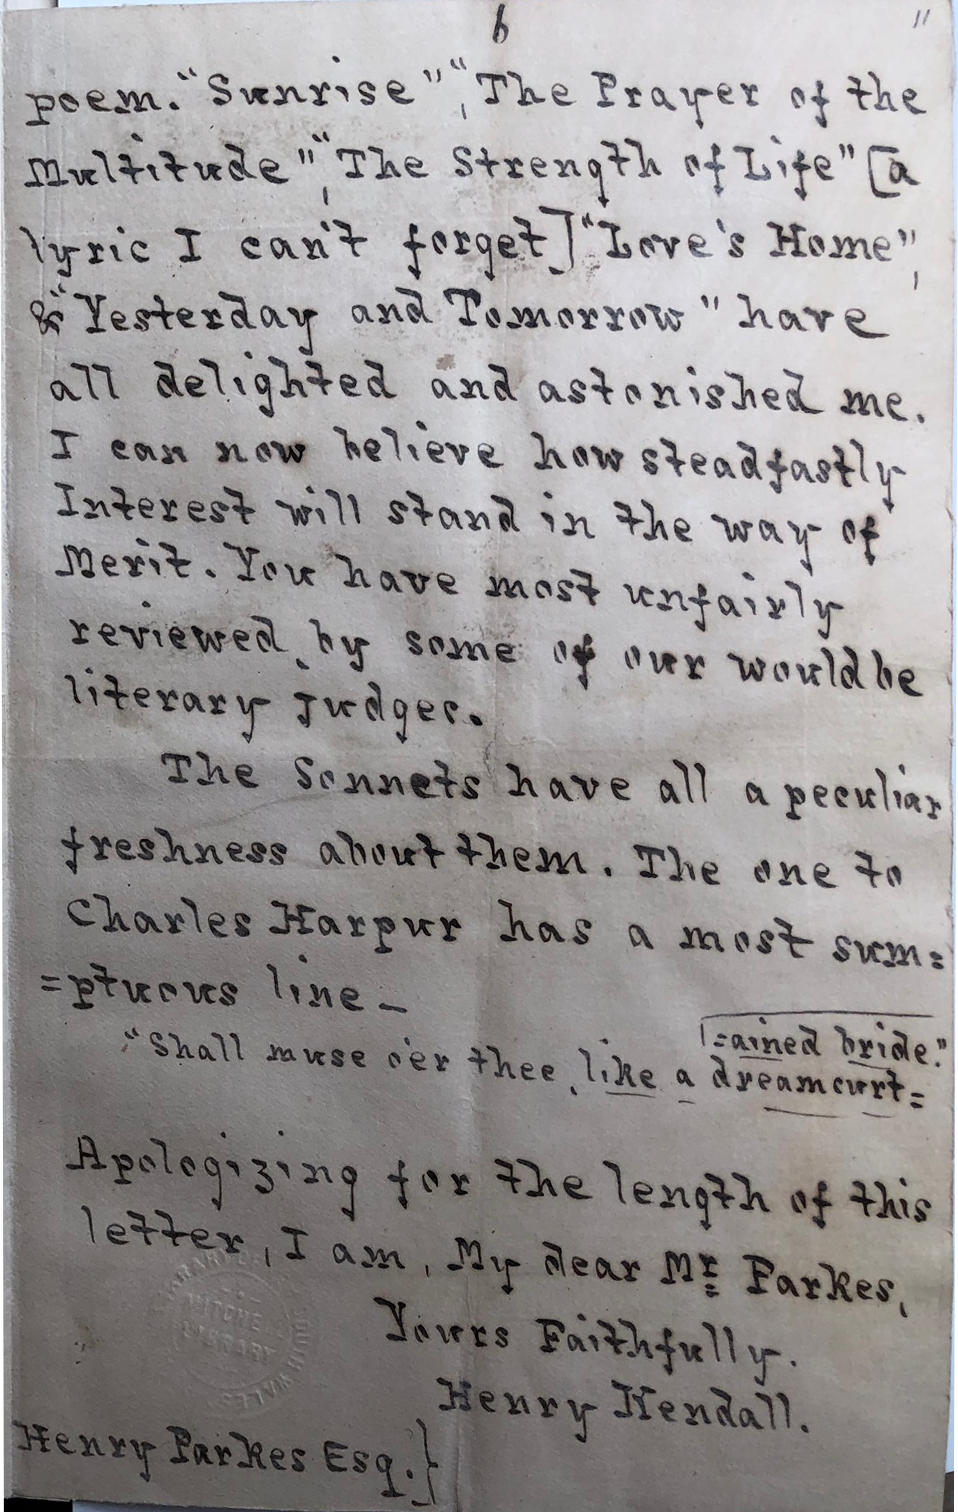 6
11
poem. "Sunrise", "The Prayer of the
Multitude", "The Strength of Life" [a
lyric I can't forget] "Love's Home",
& "Yesterday and Tomorrow" have
all delighted and astonished me.
I can now believe how steadfastly
Interest will stand in the way of
Merit. You have most unfairly
reviewed by some of our would be
literary judges.
The Sonnets have all a peculiar
freshness about them. The one to
Charles Harpur has a most sum=
=ptuous line —
"Shall muse o'er thee, like a dreamcurt=
=ained bride."
Apologizing for the length of this
letter, I am, My dear Mr Parkes,
Yours Faithfully.
Henry Kendall.
Henry Parkes Esq. }
MITCHE
LIBRARY
SOUTH WALES